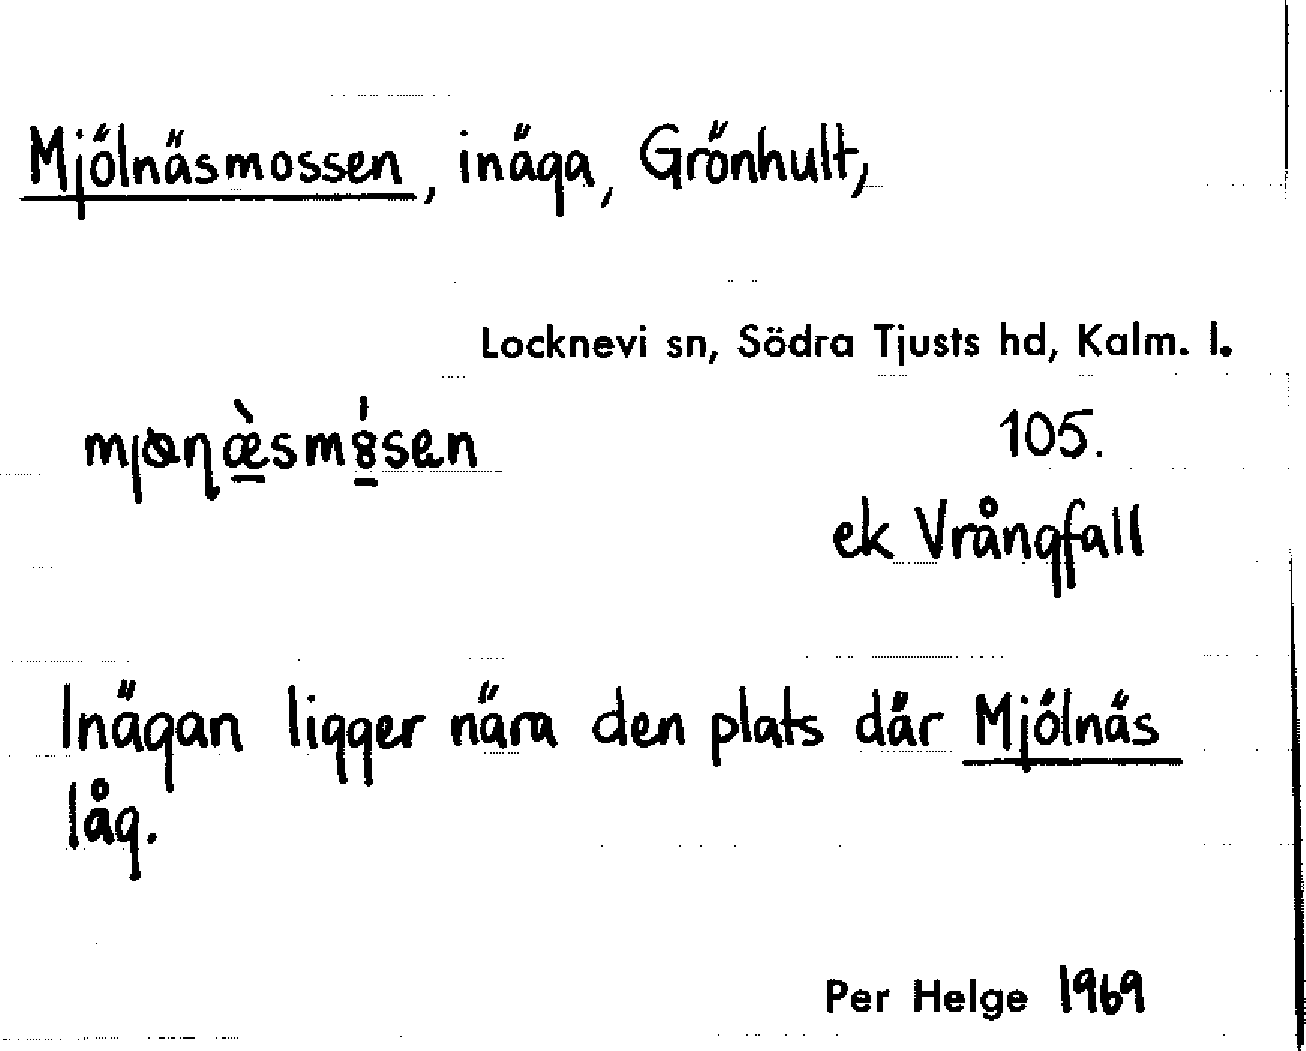 Mjölnäsmossen, inäga, Grönhult,
Locknevi sn, Södra Tjusts hd, Kalm. l.
105.
ek Vrångfall
Inägan ligger nära den plats där Mjölnäs
låg.
Per Helge 1969